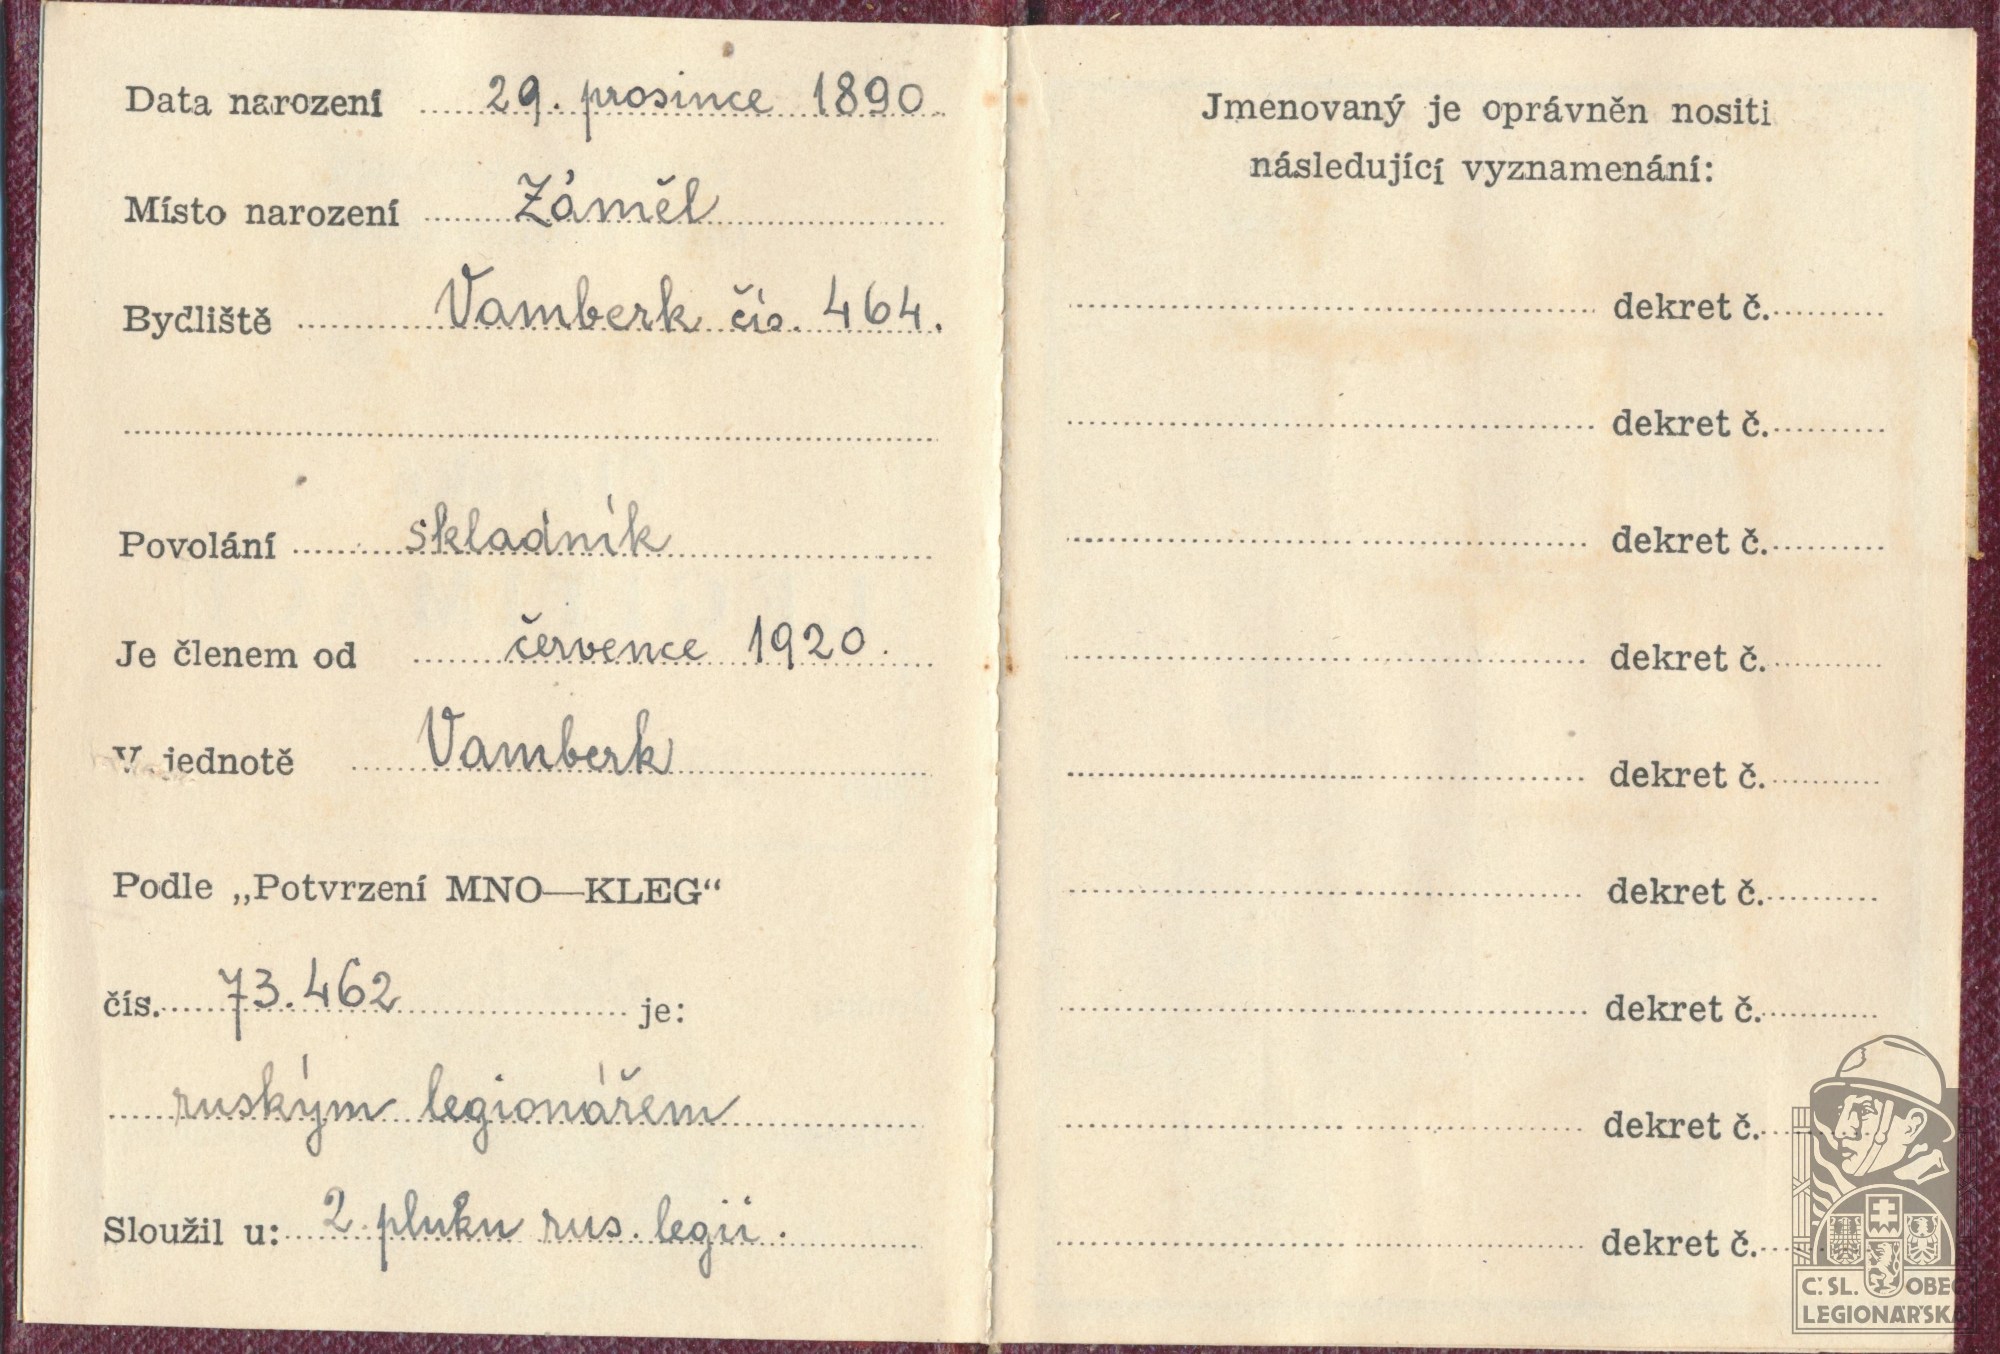 Data narození 29. prosince 1890.
Místo narození Záměl
Bydliště Vamberk čís. 464.
Povolání skladník
Je členem od července 1920.
V jednotě Vamberk
Podle „Potvrzení MNO—KLEG“
čís. 73.462 je:
ruským legionářem
Sloužil u: 2. pluku rus. legií.
Jmenovaný je oprávněn nositi
následující vyznamenání:
dekret č.
dekret č.
dekret č.
dekret č.
dekret č.
dekret č.
dekret č.
dekret č.
dekret č.
Č. SL. OBEC
LEGIONÁŘSKÁ